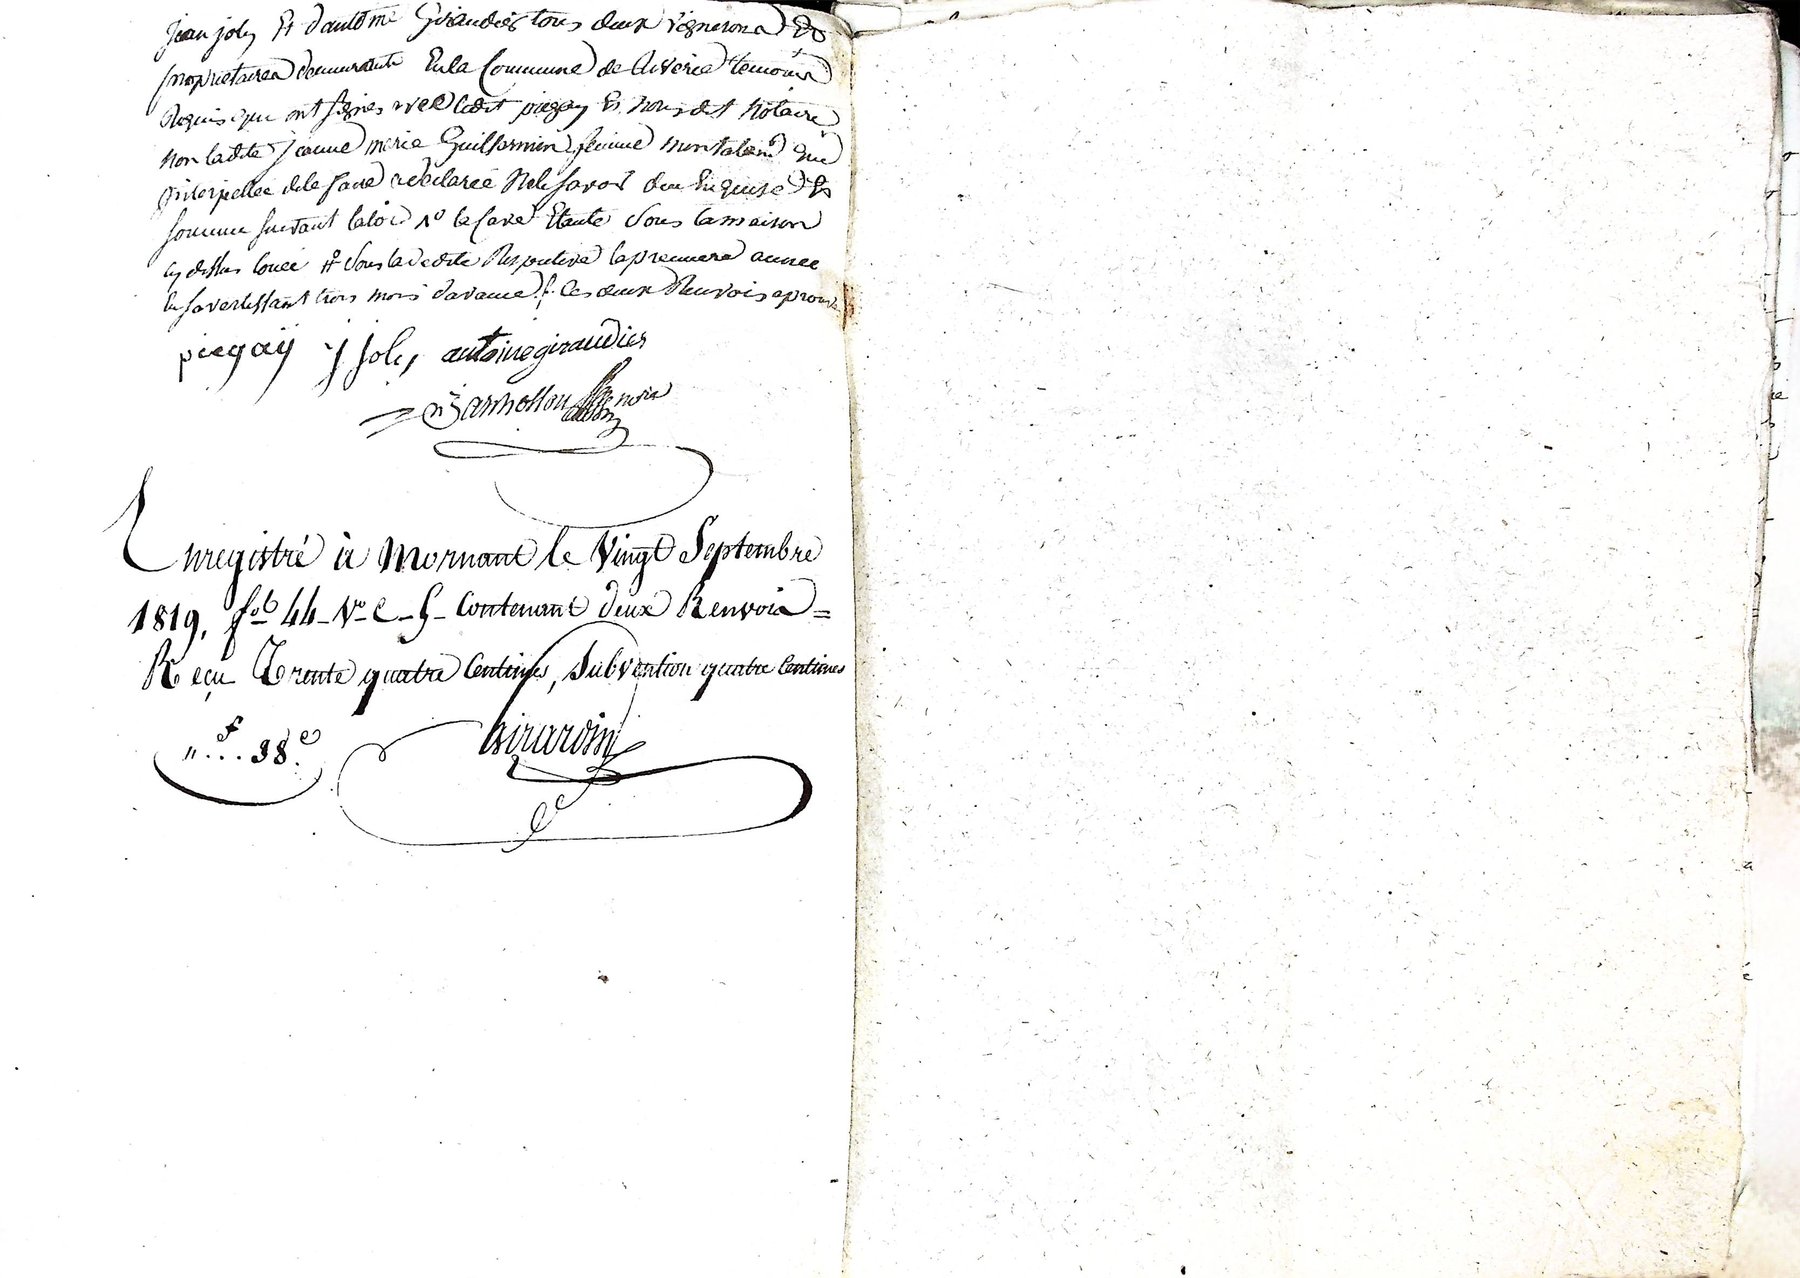 Jean joly Et dantoine Giraudier tous deux vignerons Et
proprietaires demeurants En la Commune de Riverie temoins
Requis qui ont signés avec ledit piegay Et nous dit Notaire
non ladite Jeanne marie Guillarmin femme que
Interpellee de le faire a declaree Ne le savoir deux Enquise Et
somme suivant la loi la Cave Etante sous la maison
cy dessus louée sous la dedite Respective la premiere année
En savertissant trois mois davance les deux Renvois aprouvé
piegaÿ J Joly antoine giraudier
Enregistré à Mornant le Vingt Septembre
1819, fol. 44 Vo C. 5 Contenant deux Renvois =
Reçu Trente quatre Centimes, Subvention quatre Centimes
" f ... 38 c.
Girardin